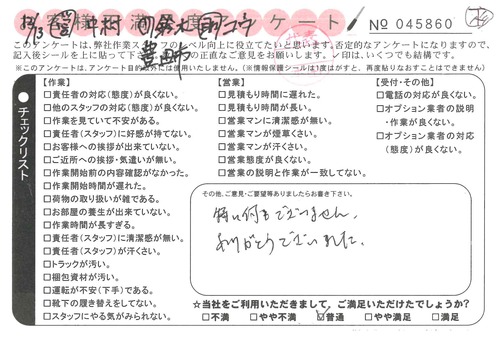 お客様満足度アンケート
No 045860
このアンケートは、弊社作業スタッフのレベル向上に役立てたいと思います。否定的なアンケートになりますので、
記入後シールを上に貼って下さい。の正直なご意見をお願いします。レ印は、いくつでも結構です。
※このアンケートは、アンケート目的以外には使用いたしません。(※情報保護シールは1度はがすと、再度貼りなおすことはできません)
●チェックリスト
【作業】
□責任者の対応(態度)が良くない。
□他のスタッフの対応(態度)が良くない。
□作業を見ていて不安がある。
□責任者(スタッフ)に好感が持てない。
□お客様への挨拶が出来ていない。
□ご近所への挨拶・気遣いが無い。
□作業開始前の内容確認がなかった。
□作業開始時間が遅れた。
□荷物の取り扱いが雑である。
□お部屋の養生が出来ていない。
□作業時間が長すぎる。
□責任者(スタッフ)に清潔感が無い。
□責任者(スタッフ)が汗くさい。
□トラックが汚い。
□梱包資材が汚い。
□運転が不安(下手)である。
□靴下の履き替えをしてない。
□スタッフにやる気がみられない。
【営業】
□見積もり時間に遅れた。
□見積もり時間が長い。
□営業マンに清潔感が無い。
□営業マンが煙草くさい。
□営業マンが汗くさい。
□営業態度が良くない。
□営業の説明と作業が一致してない。
【受付・その他】
□電話の対応が良くない。
□オプション業者の説明
・作業が良くない。
□オプション業者の対応
(態度)が良くない。
その他、ご意見・ご要望等ありましたらお書き下さい。
特に何もございません。
ありがとうございました。
☆当社をご利用いただきまして、ご満足いただけたでしょうか?
□不満 □やや不満 □普通 □やや満足 □満足